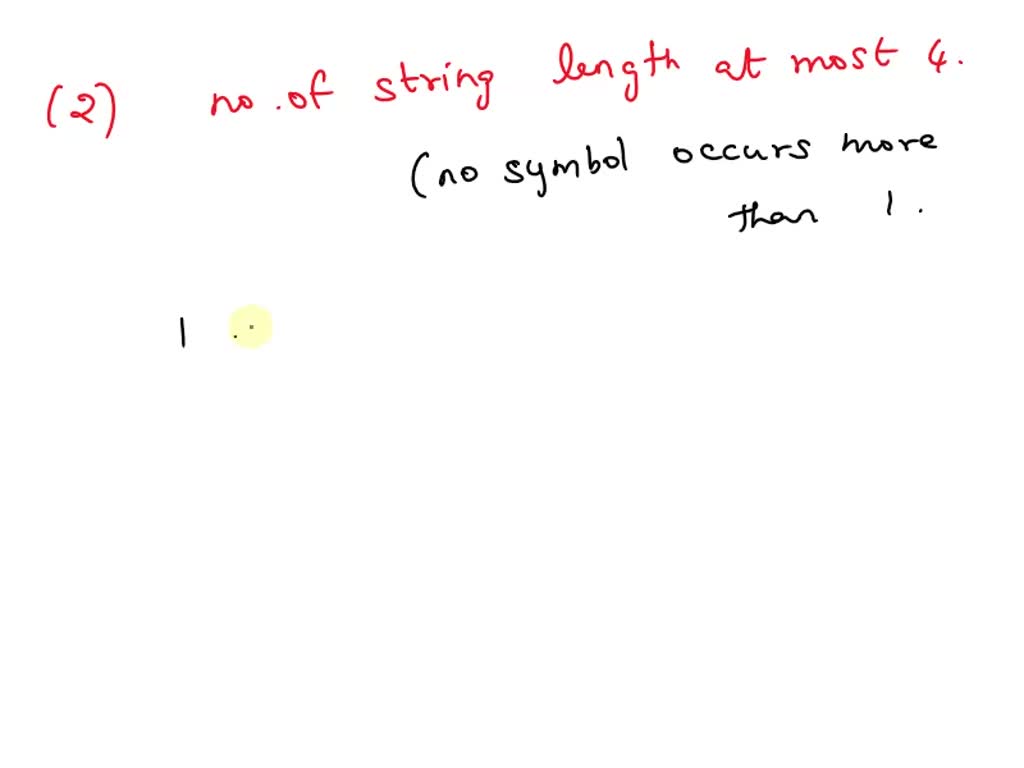 (2) no. of string length at most 4.
(no symbol occurs more
than 1.
1 .